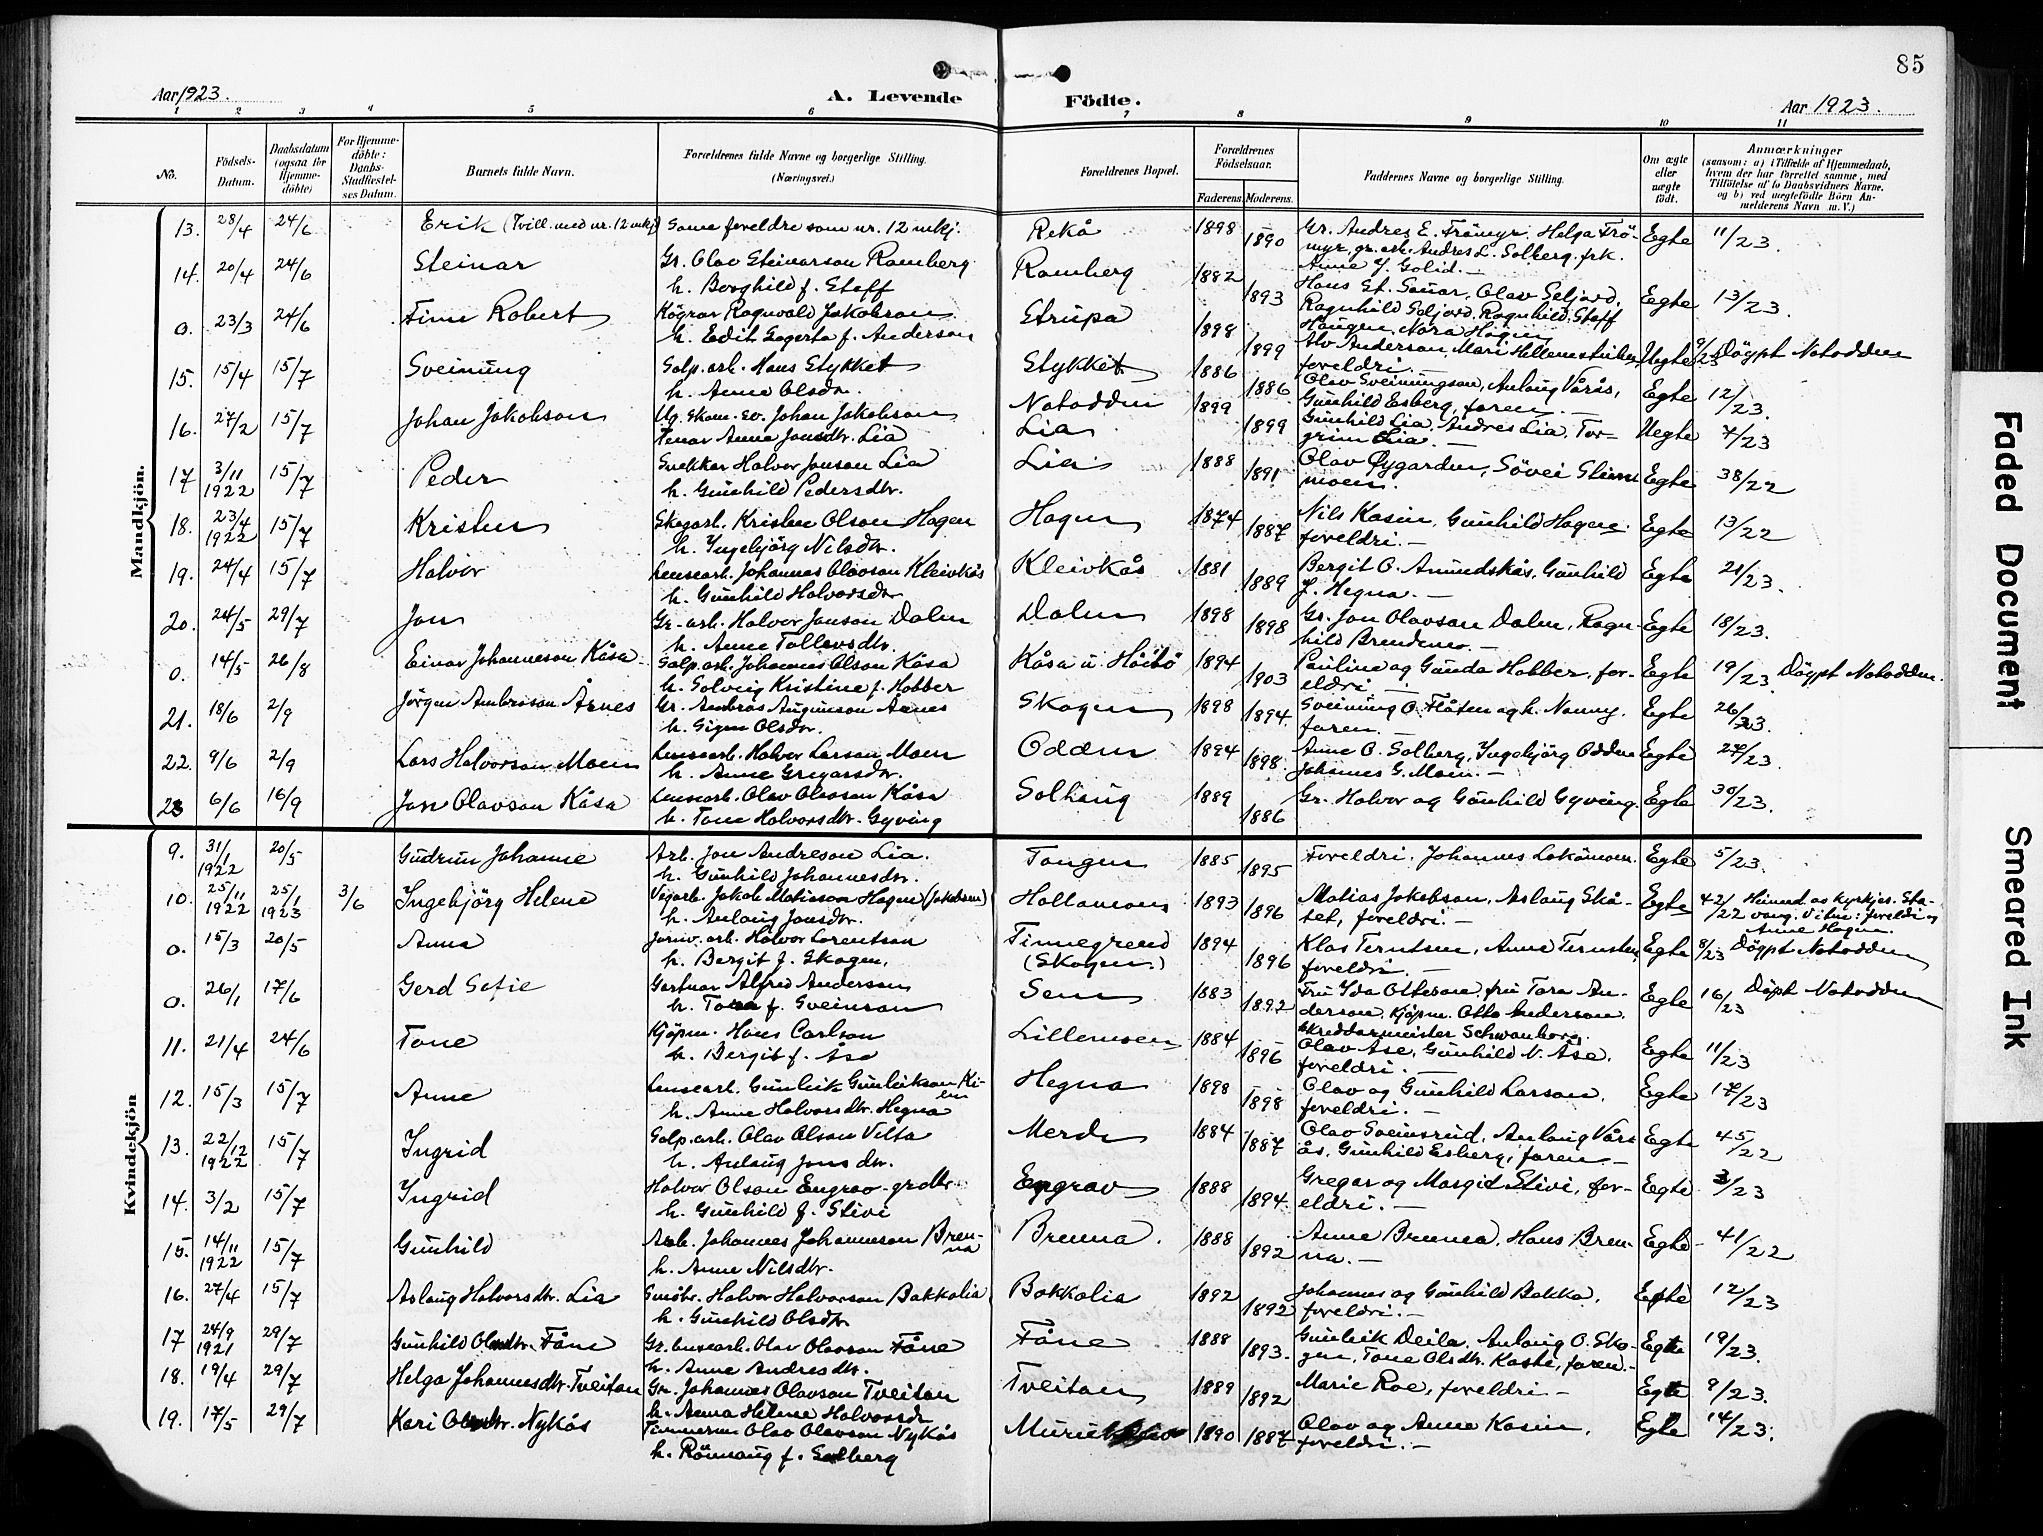 85
Aar 1923.
A. Levende Födte.
Aar 1923.
1 2 3 4 5 6 7 8 9 10 11
No.
Födsels-Datum.
Daabsdatum (ogsaa for Hjemme-döbte)
For Hjemme-döbte: Daabs-Stadfæstel-ses Datum.
Barnets fulde Navn.
Forældrenes fulde Navne og borgerlige Stilling. (Næringsvei.)
Forældrenes Bopæl.
Forældrenes Födselsaar.
Faderens. Moderens.
Faddernes Navne og borgerlige Stilling.
Om ægte eller uægte födt.
Anmærkninger
(saasom: a) i Tilfælde af Hjemmedaab, hvem der har forrettet samme, med Tilföielse af to Daabsvidners Navne, og b) ved uægtefödte Börn An-melderens Navn m. V.)
Mandkjön.
13. 28/4 24/6 Erik (Tvill. med nr. 12 mkj) Same foreldre som nr. 12 mkj. Rekå 1898 1890 Gr. Andres E. Frömyr, Helga Frö-myr, gr. arb. Andres L. Solberg, frk. Anne J. Golid. Egte 11/23.
14. 20/4 24/6 Steinar Gr. Olav Steinarson Ramberg h. Borghild f. Staff Ramberg 1882 1893 Hans St. Sauar, Olav Seljord, Ragnhild Seljord, Ragnhild Staff Egte 13/23.
0. 23/3 24/6 Finn Robert Ragnvald Jakobson h. Edit f. Anderson Strupa 1898 1899 Haugen, Nora Haugen, Alv Anderson, Mari foreldri. Uegte 9/23 Döypt Notodden
15. 15/4 15/7 Sveinung Salp. arb. Hans Stykket h. Anne Olsdr. Stykket 1886 1886 Olav Sveinungson, Anlaug Vårås, Gunhild Esberg, faren. Egte 12/23.
16. 27/2 15/7 Johan Jakobson Ug. Johan Jakobson Anne Jonsdtr. Lia Notodden Lia 1899 1899 Gunhild Lia, Andres Lia, Tor-grim Lia. Uegte 7/23
17 3/11 1922 15/7 Peder Snekkar Halvor Jonson Lia h. Gunhild Pedersdtr. Lia 1888 1891 Olav Öygarden, Sövei Steinmoen. Egte 38/22
18. 23/4 1922 15/7 Kristen Skogarb. Kristen Olson Hagen h. Ingebjörg Nilsdtr. Hagen 1874 1887 Nils Kasin, Gunhild Hagene. foreldri. Egte 13/22
19. 24/4 15/7 Halvor Lensearb. Johannes Olavson Kleivkås h. Gunhild Halvorsdtr Kleivkås 1881 1889 Bergit O. Amundskås, Gunhild J. Hegna. Egte 21/23.
20. 24/5 29/7 Jon Gr-arb. Halvor Jonson Dalen h. Anne Tollevsdtr. Dalen 1898 1898 Gr. Jon Olavson Dalen, Ragn-hild Brendemo. Egte 18/23.
0. 14/5 26/8 Einar Johanneson Kåsa Salp. arb. Johannes Olson Kåsa h. Solveig Kristine f. Hobber Kåsa u. Haibö 1894 1903 Pauline og Gunda Hobber, for-eldri. Egte 19/23. Döypt Notodden.
21. 18/6 2/9 Jörgen Ambroson Årnes Gr. Ambros Augunson Årnes h. Signe Olsdtr. Skogen 1898 1894. Sveinung O. Flåten og h. Nanny, faren. Egte 26/23.
22. 9/6 2/9 Lars Halvorson Moen Lensearb. Halvor Larson Moen h. Anne Gregarsdtr. Odden 1894 1898. Anne O. Solberg, Ingebjörg Odden Johannes G. Moen. Egte 27/23.
23 6/6 16/9 Jon Olavson Kåsa Lensearb. Olav Olavson Kåsa h. Tone Halvorsdtr. Gyving Solhaug 1889 1886 Gr. Halvor og Gunhild Gyving. Egte 30/23.
Kvindekjön
9. 31/1 1922 20/5 Gudrun Johanne Arb. Jon Andreson Lia. h. Gunhild Johannesdtr. Tangen 1885 1895 Foreldri, Johannes Egte 5/23.
10. 25/11 1922 25/1 1923 3/6 Ingebjörg Helene Vegarb. Jakob Matiasson Hagen (Jakobsen) h. Anlaug Jonsdtr. 1893 1896 Matias Jakobson, Aslaug foreldri. Egte 42/22 Heimd. av kyrkjes. Sta-vang. Vitne: foreldri og Anne Hagen.
0. 15/3 20/5 Anna Jernv. arb. Halvor Lorentson h. Bergit f. Skogen. Tinnegrend (Skogen.) 1894 1896 Klas Terntsen, Anne Terntsen, foreldri. Egte 8/23 Döypt Notodden
0. 26/1 17/6 Gerd Sofie Gartnar Alfred Anderson h. Tora f. Sveinson Sem 1883 1892 Fru Ida Otteson, fru Tora An-derson, Kjöpm. Otto Anderson, Skreddarmeister Schwanborg. Egte 16/23 Döypt Notodden
11. 21/4 24/6 Tone Kjöpm. Hans Carlson h. Bergit f. Åse Lillemoen 1884 1896 Olav Åse, Gunhild N. Åse, foreldri. Egte 11/23
12. 15/3 15/7 Anne Lensearb. Gunleik Gunleikson h. Anne Halvorsdtr. Hegna Hegna 1898 1898 Olav og Gunhild Larson, foreldri. Egte 17/23
13. 22/12 1922 15/7 Ingrid Salp. arb. Olav Olson Velta h. Anlaug Jonsdtr. Merde 1884 1887 Olav Sveinsrud, Anlaug Vår-ås, Gunhild Esberg, faren. Egte 45/22
14. 3/2 15/7 Ingrid Halvor Olson Engrav h. Gunhild f. Stivi Engrav 1888 1894 Gregar og Margit Stivi, for-eldri. Egte 3/23
15. 14/11 1922 15/7 Gunhild Arb. Johannes Johanneson Bren-na h. Anne Nilsdtr. Brenna. 1888 1892 Anne Brenna, Hans Bren-na. Egte 41/22
16. 27/4 15/7 Aslaug Halvorsdtr. Lia Halvor Halvorson Bakkalia h. Gunhild Olsdtr Bakkalia 1892 1892 Johannes og Gunhild Bakka, foreldri. Egte 12/23
17 24/9 1921 29/7 Gunhild Olavsdtr. Fåne Gr. lensearb. Olav Olavson Fåne h. Anne Andresdtr. Fåne 1888 1893. Gunleik Deila, Anlaug O. Sko-gen, Tone Olsdtr. Kaste, faren. Egte 19/23.
18. 19/4 29/7 Helga Johannesdtr. Tveitan Gr. Johannes Olavson Tveitan h. Anna Helene Halvorsdtr Tveitan 1889 1892 Marie Roe, foreldri Egte 9/23.
19. 17/5 29/7 Kari Olavsdtr. Nykås Tömmerm. Olav Olavson Nykås h. Rönnaug f. Solberg 1890 1887 Olav og Anne Kasin, foreldri. Egte 14/23.
Faded Document
Smeared Ink